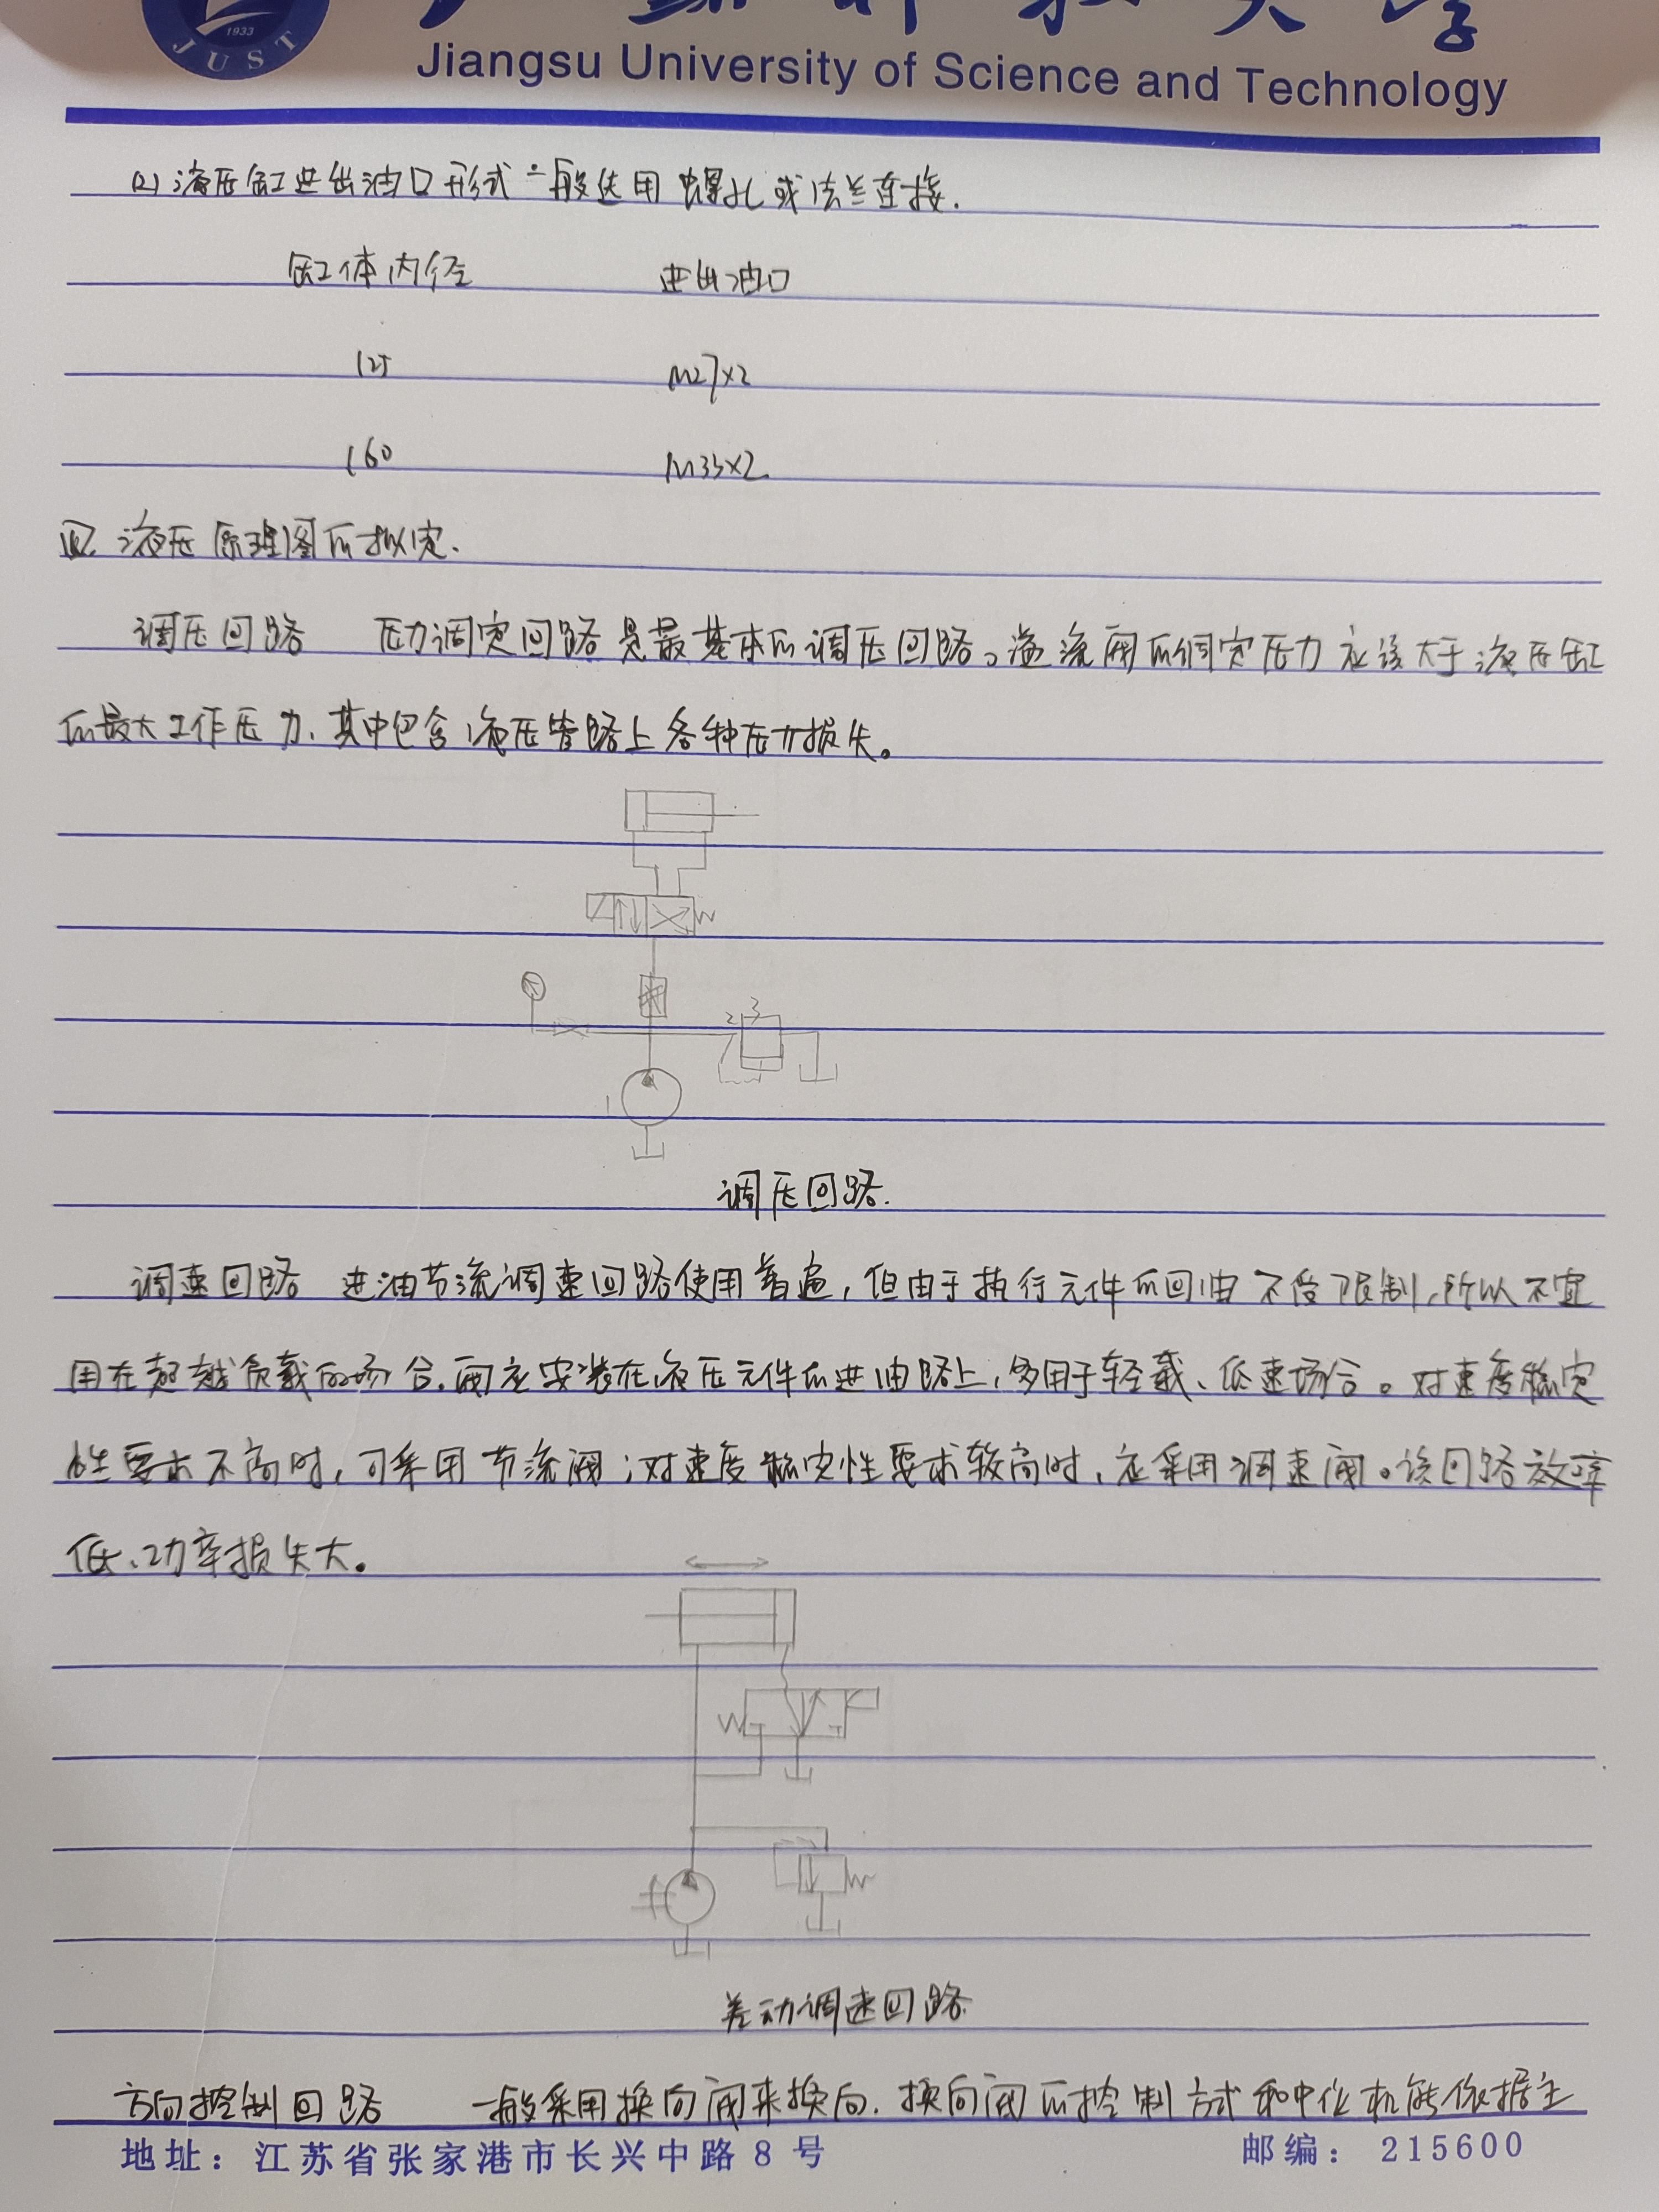 1933
JUST
Jiangsu University of Science and Technology
(2) 液压缸进出油口形式一般选用螺孔或法兰连接.
缸体内径 进出油口
125 M27×2
160 M33×2
四. 液压原理图的拟定.
调压回路 压力调定回路是最基本的调压回路。溢流阀的调定压力应该大于液压缸
的最大工作压力、其中包含液压管路上各种压力损失。
2 3
1
调压回路.
调速回路 进油节流调速回路使用普遍,但由于执行元件的回油不受限制,所以不宜
用在超越负载的场合.阀应安装在液压元件的进油路上,多用于轻载、低速场合。对速度稳定
性要求不高时,可采用节流阀;对速度稳定性要求较高时,应采用调速阀。该回路效率
低、功率损失大。
差动调速回路
方向控制回路 一般采用换向阀来换向.换向阀的控制方式和中位机能依据主
地址:江苏省张家港市长兴中路 8 号 邮编: 215600